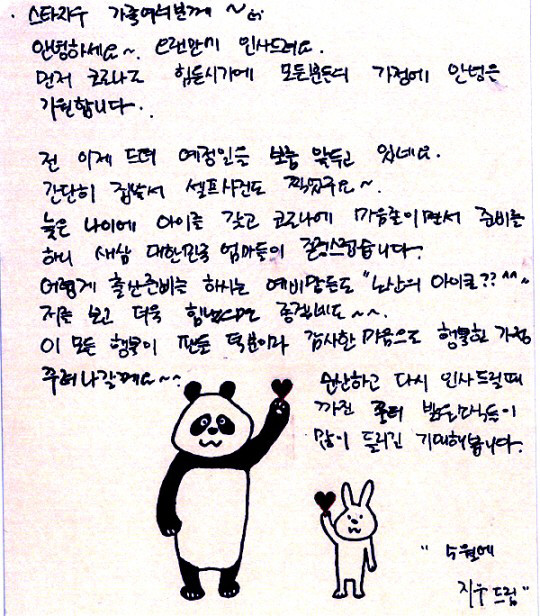 · 스타지우 가족여러분께 ~
안녕하세요~. 오랜만이 인사드려요.
먼저 코로나로 힘든시기에 모든분들의 가정에 안녕을
기원합니다.
전 이제 드뎌 예정일을 보름 앞두고 있네요.
간단히 집에서 셀프사진도 찍었구요~.
늦은 나이에 아이를 갖고 코로나에 마음졸이면서 준비를
하니 새삼 대한민국 엄마들이 존경스럽습니다.
어렵게 출산준비는 하시는 예비맘들도 "노산의 아이콘?? ^^~
저를 보고 더욱 힘냈으면 좋겠네요~~.
이 모든 행복이 팬들 덕분이라 감사한 마음으로 행복한 가정
꾸려나갈께요~~.
순산하고 다시 인사드릴때
까진 좀더 밝은 소식들이
많이 들리길 기대해봅니다.
" 5월에
지우 드림 "